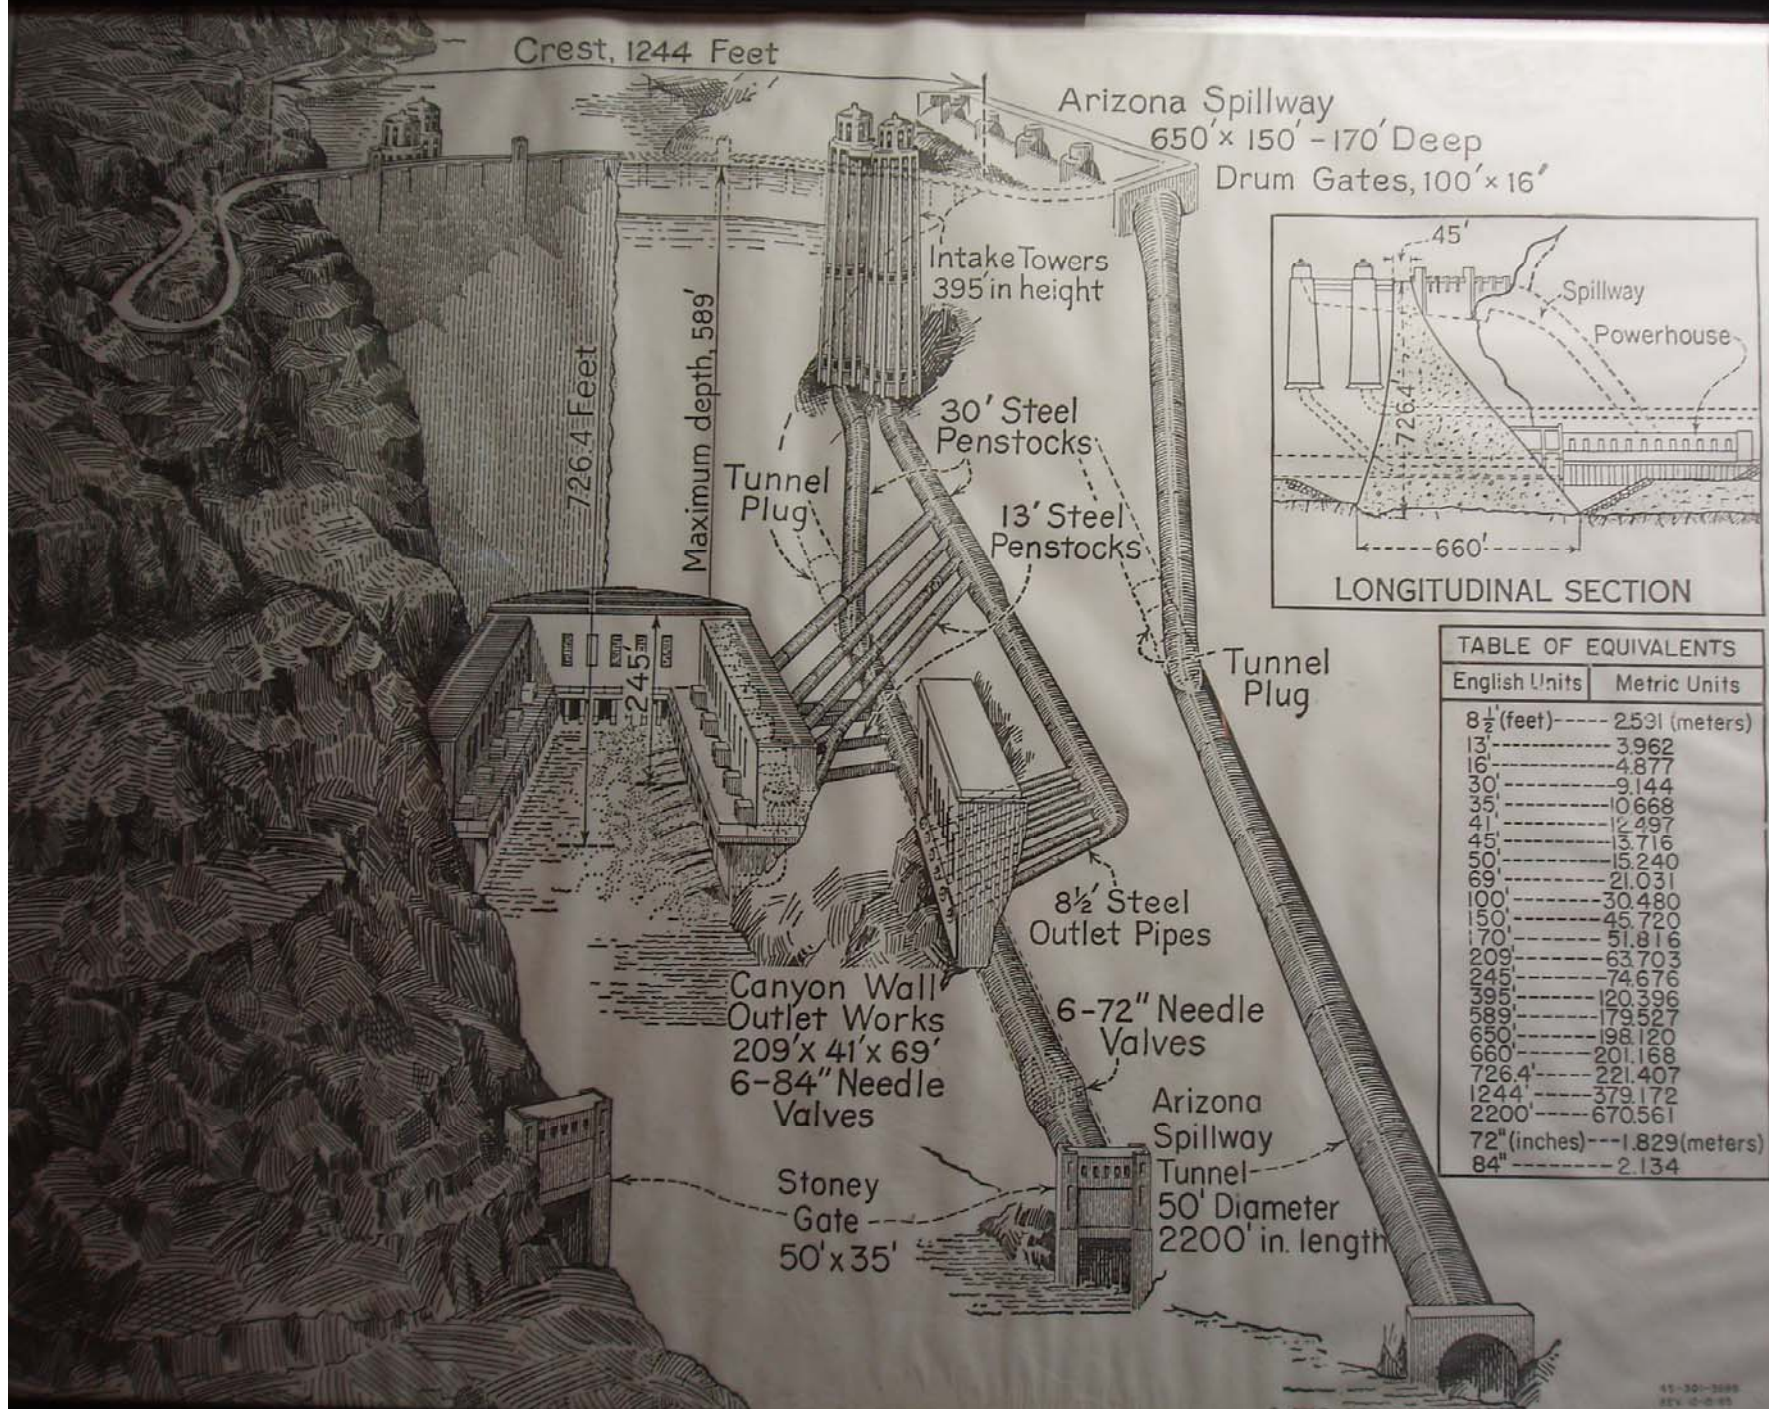 Crest, 1244 Feet
Arizona Spillway
650'x 150' - 170' Deep
Drum Gates, 100' x 16"
Intake Towers
395' in height
726.4 Feet
Maximum depth, 589'
30' Steel
Penstocks
Tunnel
Plug
13' Steel
Penstocks
245'
Tunnel
Plug
8½' Steel
Outlet Pipes
Canyon Wall
Outlet Works
209'X 41'x 69'
6-84" Needle
Valves
6-72" Needle
Valves
Arizona
Spillway
Tunnel
50' Diameter
2200' in. length
Stoney
Gate
50'x 35'
45'
Spillway
Powerhouse
726.4'
660'
LONGITUDINAL SECTION
TABLE OF EQUIVALENTS
English Units Metric Units
8½'(feet)-----2.591 (meters)
13'------------3.962
16'------------4.877
30'------------9.144
35'-----------10.668
41'-----------12.497
45'-----------13.716
50'-----------15.240
69'-----------21.031
100'----------30.480
150'----------45.720
170'----------51.816
209'----------63.703
245'----------74.676
395'---------120.396
589'---------179.527
650'---------198.120
660'---------201.168
726.4'-------221.407
1244'--------379.172
2200'-------670.561
72"(inches)---1.829(meters)
84"----------2.134